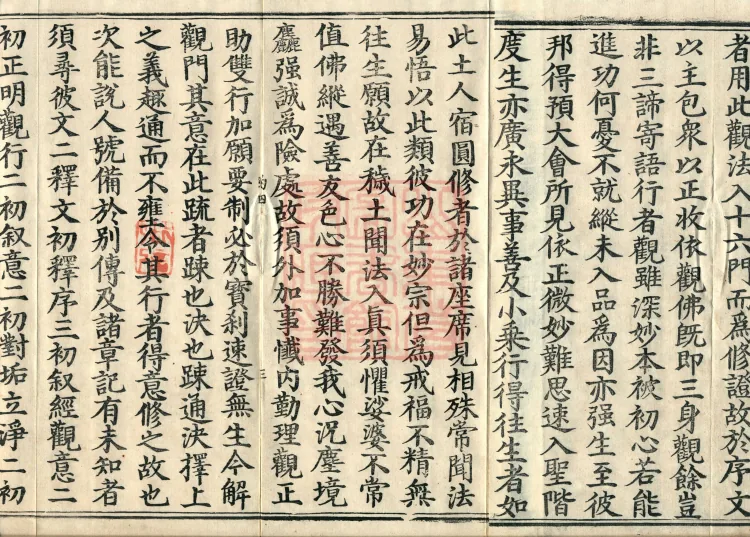 者用此觀法入十六門而爲修證故於序文
以主包衆以正收依觀佛旣即三身觀餘豈
非三諦寄語行者觀雖深妙本被初心若能
進功何憂不就縱未入品爲因亦强生至彼
邦得預大會所見依正微妙難思速入聖階
度生亦廣永異事善及小乘行得往生者如
此土人宿圓修者於諸座席見相殊常聞法
易悟以此類彼功在妙宗但爲戒福不精無
往生願故在穢土聞法入眞須懼娑婆不常
值佛縱遇善友色心不勝難發我心況塵境
麤强誠爲險處故須外加事懺内勤理觀正
助雙行加願要制必於寶刹速證無生今解
觀門其意在此疏者踈也決也踈通決擇上
之義趣通而不壅令其行者得意修之故也
次能說人號備於別傳及諸章記有未知者
須尋彼文二釋文初釋序三初叙經觀意二
初正明觀行二初叙意二初對垢立淨二初
三